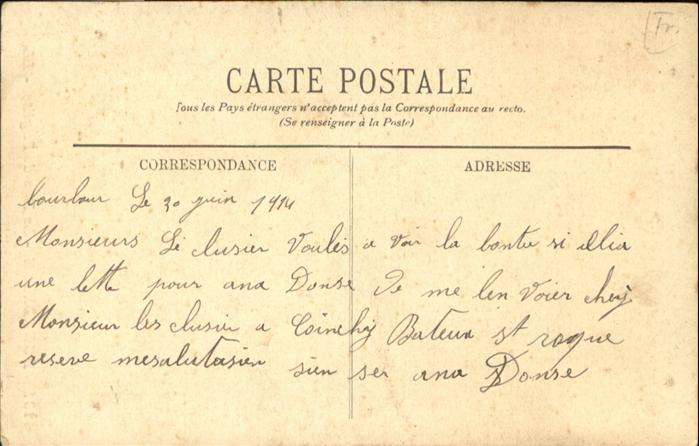 Fr.
CARTE POSTALE
Tous les Pays étrangers n'acceptent pas la Correspondance au recto.
(Se renseigner à la Poste)
CORRESPONDANCE
ADRESSE
Le 20 juin 1914
Monsieurs Le clusier Voules a voir la bonte si
une lett pour ana Donse De me len Voier chez
Monsieur les clusier a Bateux st roque
reseve mesalutasien sien ser ana Donse